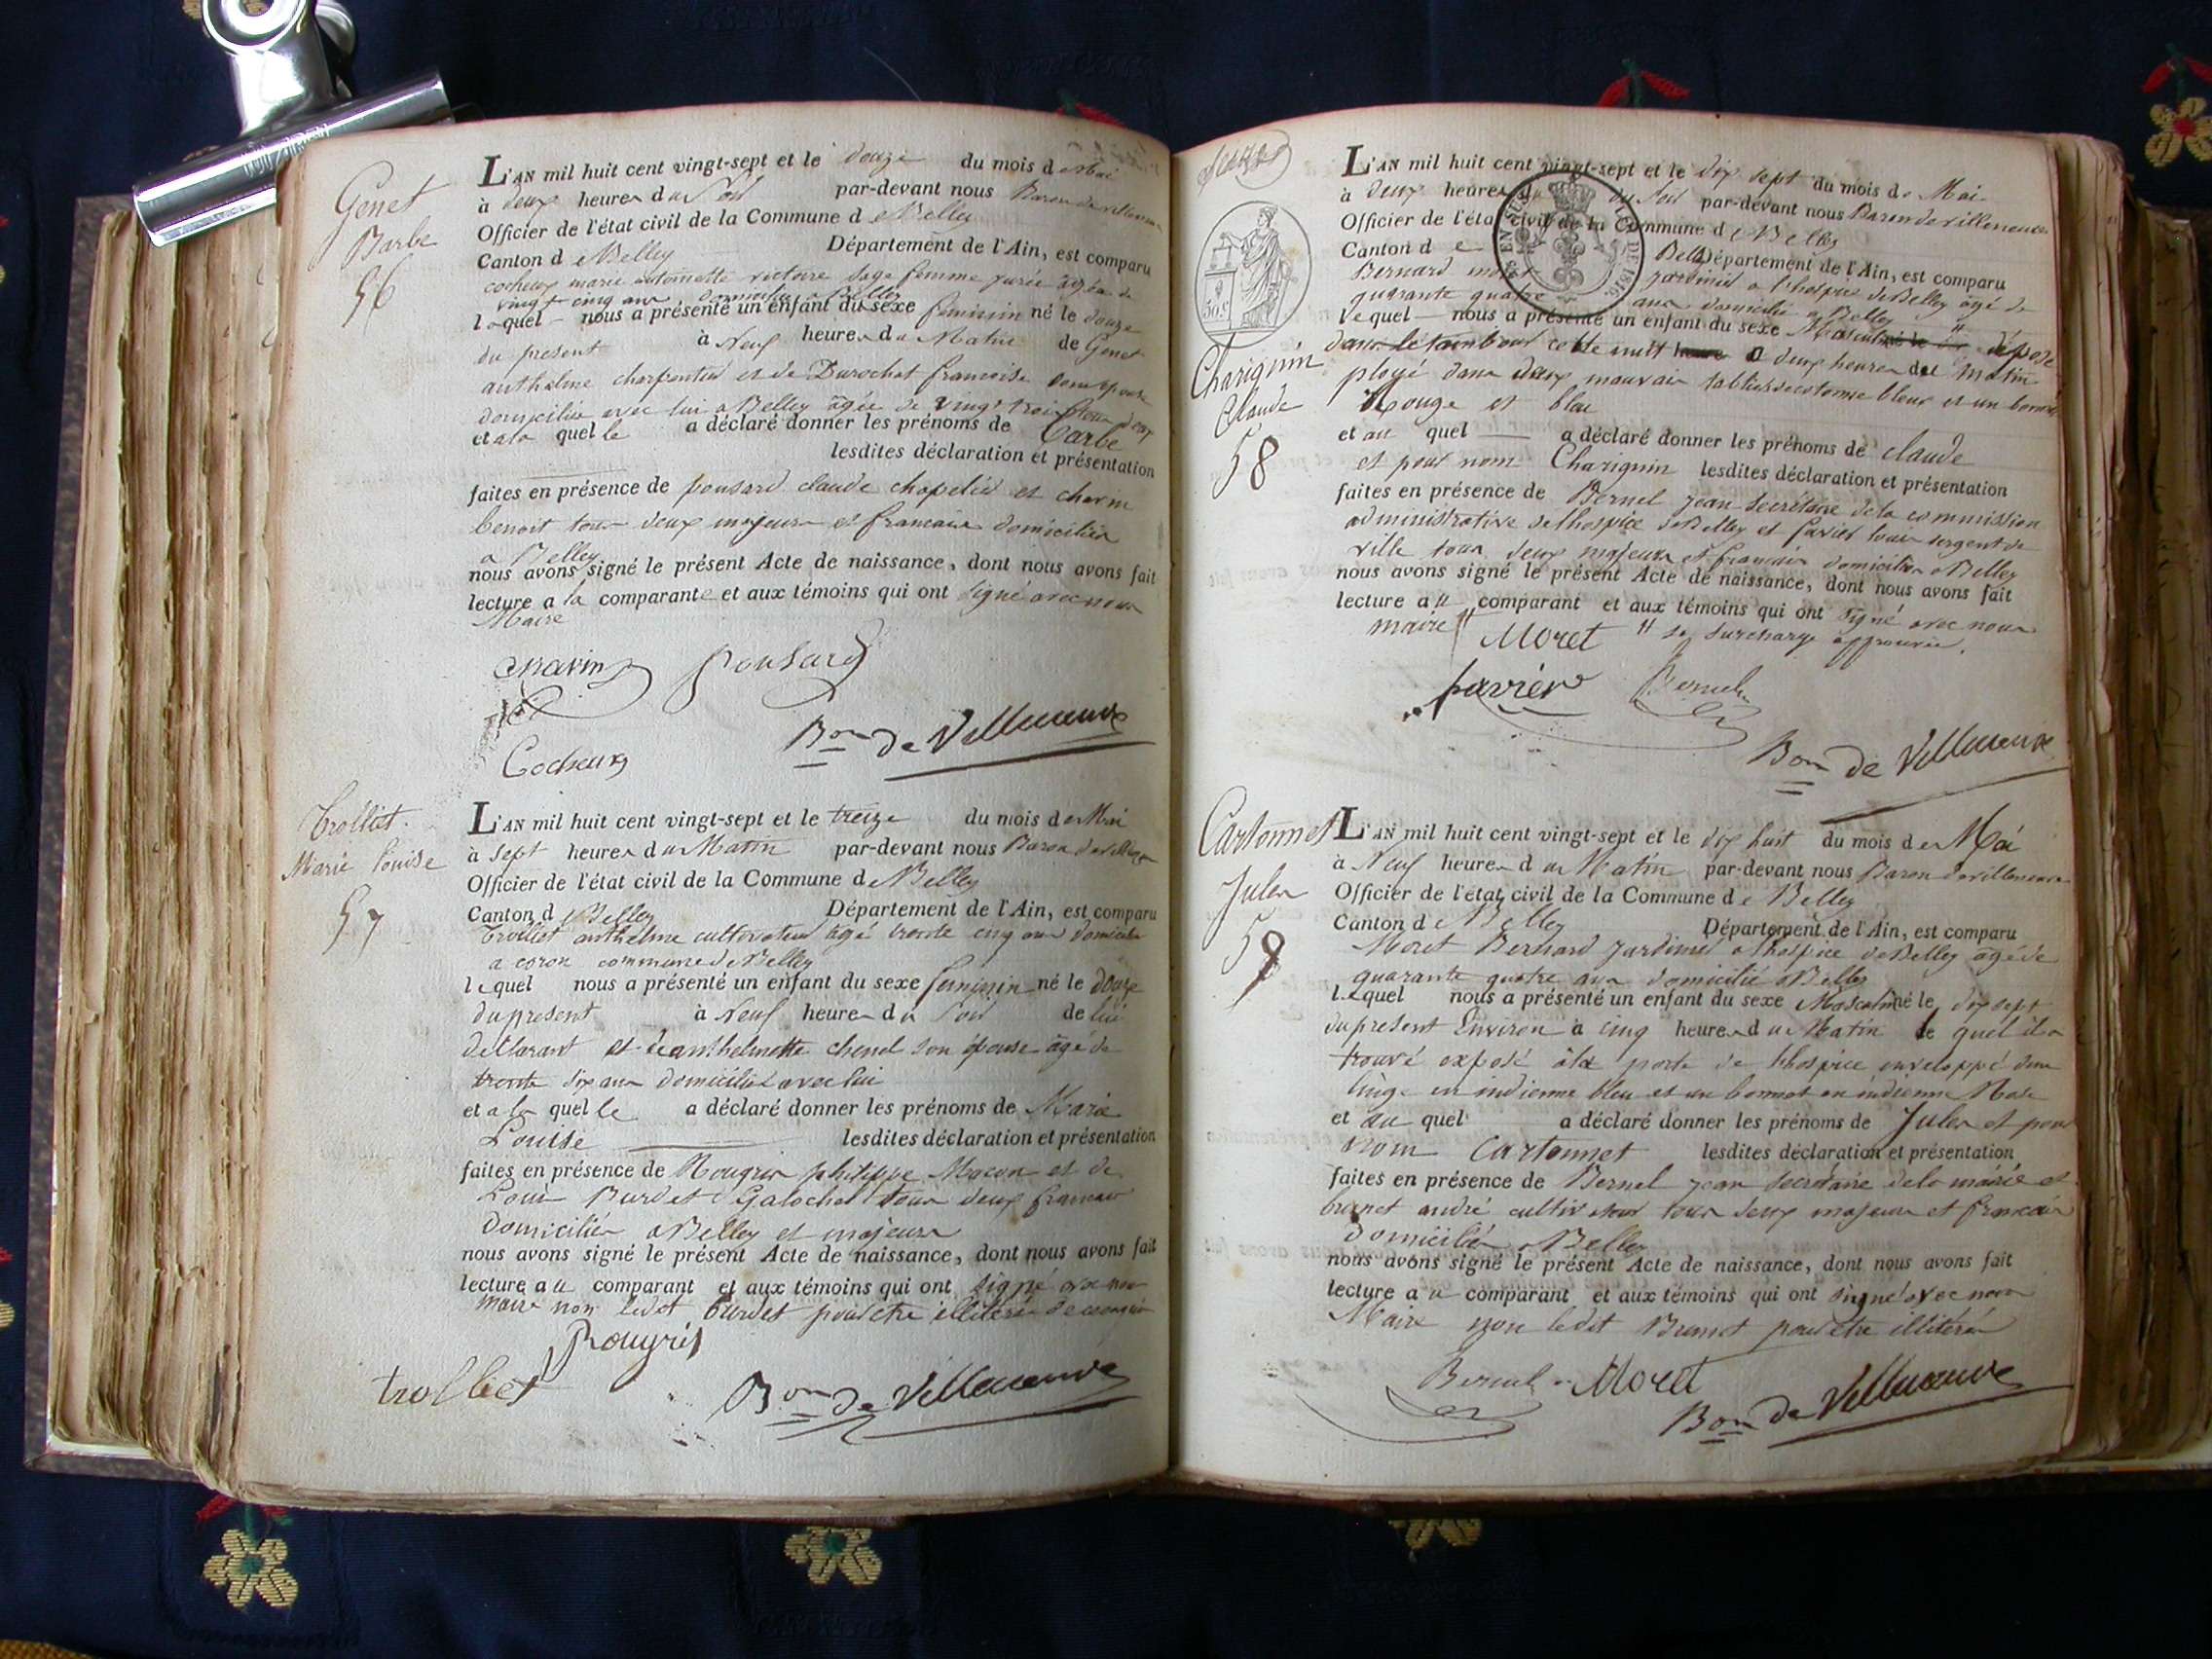 Genet
Barbe
56
L'AN mil huit cent vingt-sept et le douze du mois de Mai
à deux heures du Soir par-devant nous Baron de villeneuve
Officier de l'état civil de la Commune de Belley
Canton de Belley Département de l'Ain, est comparu
cocheux marie antoinette victoire sage femme jurée agée de
vingt cinq ans domiciliée a Belley
laquel nous a présenté un enfant du sexe feminin né le douze
du present à Neuf heures du Matin de Genet
anthelme charpentier et de Durochat francoise son epouse
domiciliée avec lui a Belley agée de vingt trois
et a la quelle a déclaré donner les prénoms de Barbe
lesdites déclaration et présentation
faites en présence de ponsard claude chapelier et charin
benoit tous deux majeurs et francais domiciliés
a Belley
nous avons signé le présent Acte de naissance, dont nous avons fait
lecture a la comparante et aux témoins qui ont signé avec nous
Maire
charin ponsard
Cocheux
Bon de Villeneuve
Trolliet
Marie Louise
57
L'AN mil huit cent vingt-sept et le treize du mois de Mai
à sept heures du Matin par-devant nous Baron de villeneuve
Officier de l'état civil de la Commune de Belley
Canton de Belley Département de l'Ain, est comparu
Trolliet anthelme cultivateur agé trente cinq ans domicilié
a coron commune de Belley
lequel nous a présenté un enfant du sexe feminin né le douze
du present à Neuf heures du Soir de lui
déclarant et de anthelmette chenel son épouse agé de
trente six ans domiciliée avec lui
et a la quelle a déclaré donner les prénoms de Marie
Louise lesdites déclaration et présentation
faites en présence de Rougris philippe Macon et de
Louis Burdet Galochet tous deux francais
domiciliés a Belley et majeurs
nous avons signé le présent Acte de naissance, dont nous avons fait
lecture au comparant et aux témoins qui ont signé avec nous
maire non ledit burdet pour etre illitéré de ce enquis
Rougris
trolliet
Bon de Villeneuve
TIMBRE
50 c
Charignin
Claude
58
L'AN mil huit cent vingt-sept et le dix sept du mois de Mai
à deux heures du Soir par-devant nous Baron de villeneuve
Officier de l'état civil de la Commune de Belley
Canton de Belley Département de l'Ain, est comparu
Bernard moret jardinier a l'hospice de Belley agé de
quarante quatre ans domicilié a Belley
lequel nous a présenté un enfant du sexe Masculin déposé
dans le tambour cette nuit a deux heures du matin
ployé dans deux mauvais tabliers de cotonne bleux et un bonnet
Rouge et bleu
et au quel a déclaré donner les prénoms de claude
et pour nom Charignin lesdites déclaration et présentation
faites en présence de Bernel jean secrétaire de la commission
administrative de l'hospice de Belley et favier louis sergent de
ville tous deux majeurs et francais domiciliés a Belley
nous avons signé le présent Acte de naissance, dont nous avons fait
lecture au comparant et aux témoins qui ont signé avec nous
maire
Moret surcharge approuvée.
favier Bernel
Bon de Villeneuve
Cartonnet
Jules
59
L'AN mil huit cent vingt-sept et le dix huit du mois de Mai
à Neuf heures du Matin par-devant nous Baron de villeneuve
Officier de l'état civil de la Commune de Belley
Canton de Belley Département de l'Ain, est comparu
Moret Bernard jardinier a l'hospice de Belley agé de
quarante quatre ans domicilié a Belley
lequel nous a présenté un enfant du sexe Masculin né le dix sept
du present Environ à cinq heures du Matin le quel il a
trouvé exposé à la porte de l'hospice enveloppé d'un
linge en indienne bleu et un bonnet en indienne Rose
et au quel a déclaré donner les prénoms de Jules et pour
nom Cartonnet lesdites déclaration et présentation
faites en présence de Bernel jean secrétaire de la mairie et
brunet andré cultivateur tous deux majeurs et francais
domiciliés a Belley
nous avons signé le présent Acte de naissance, dont nous avons fait
lecture au comparant et aux témoins qui ont signé avec nous
Maire non ledit Brunet pour etre illitéré
Bernel Moret
Bon de Villeneuve